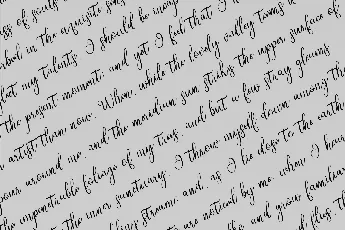 ss of souls
bed in the exquisite
that my talents. I should be incap
the present moment; and yet I feel that I
artist than now. When, while the lovely valley teems
around me, and the meridian sun strikes the upper surface of
the impenetrable foliage of my trees, and but a few stray gleams
the inner sanctuary, I throw myself down among the
stream; and, as I lie close to the earth
are noticed by me: when I hear
and grow familiar